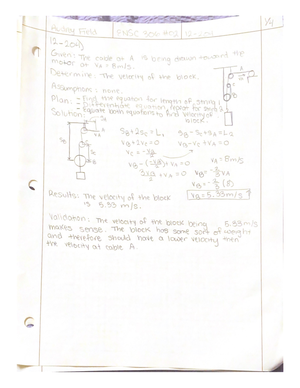 Ashley Field
ENSC 300 #12 12-204
1/4
12-204)
Given: The cable at A is being drawn toward the
motor at VA = 8m/s.
Determine: The velocity of the block.
Assumptions: none.
Plan: - Find the equation for lengths of string
- Differentiate equation, repeat for
- Equate both equations to find velocity of
block.
Solution:
SB+2SC = L
SA-SC+SA = L2
VB+2VC = 0
VA-VC+VA = 0
VA = 8m/s
VB = 5.33m/s ↑
Results: The velocity of the block
is 5.33 m/s.
Validation: The velocity of the block being 5.33 m/s
makes sense. The block has some sort of weight
and therefore should have a lower velocity then
the velocity at cable A.